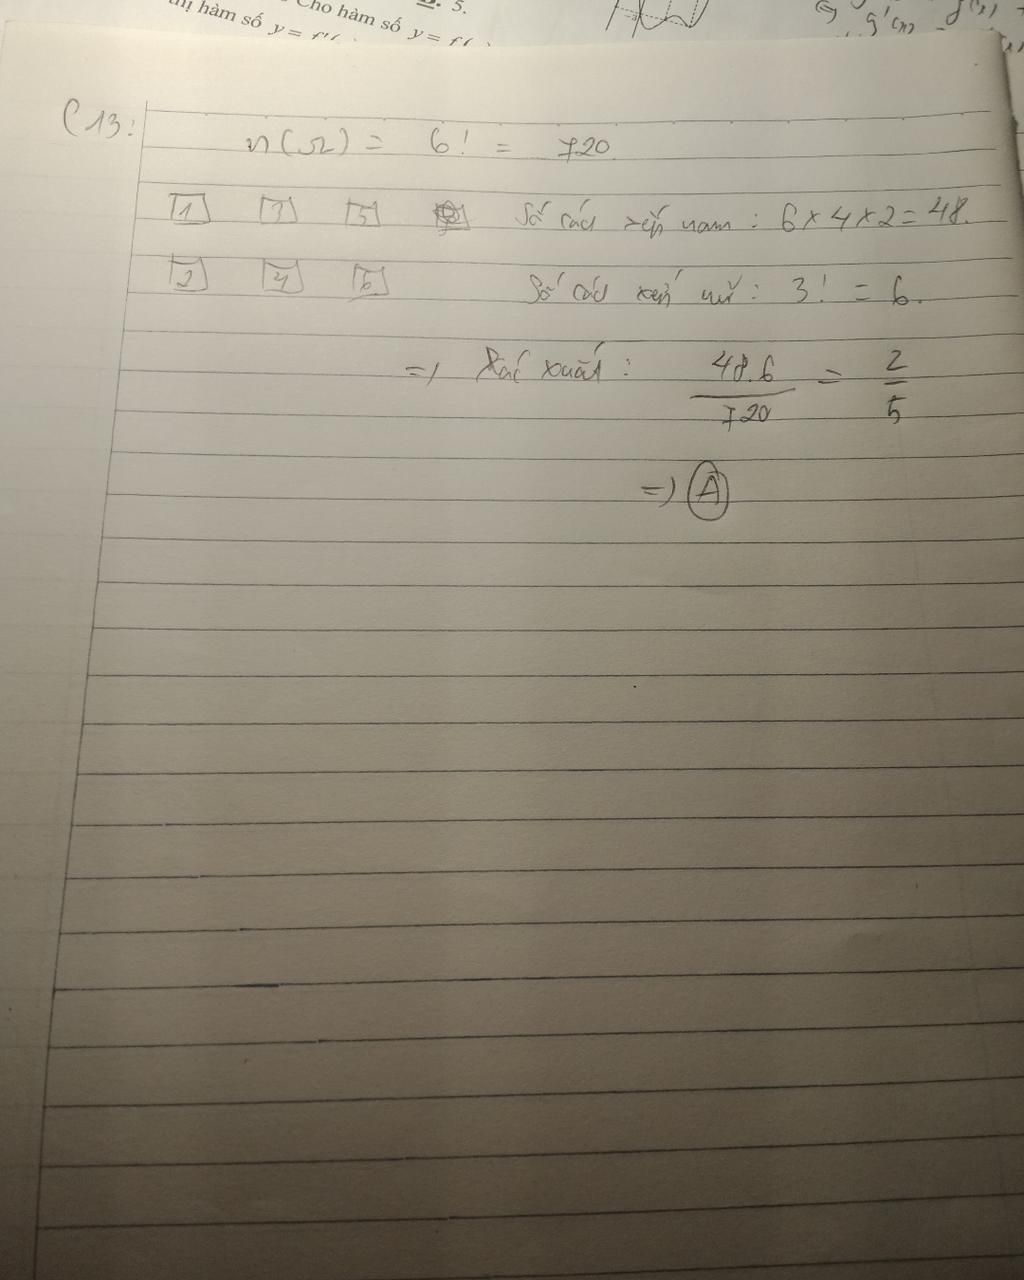 5.
Cho hàm số y =
thị hàm số y =
g'(x)
C13:
n(Ω) = 6! = 720
1 3 5 Số cách xếp nam: 6 × 4 × 2 = 48.
2 4 6 Số cách xếp nữ: 3! = 6.
=) Xác xuất: 48.6 / 720 = 2 / 5
=) A